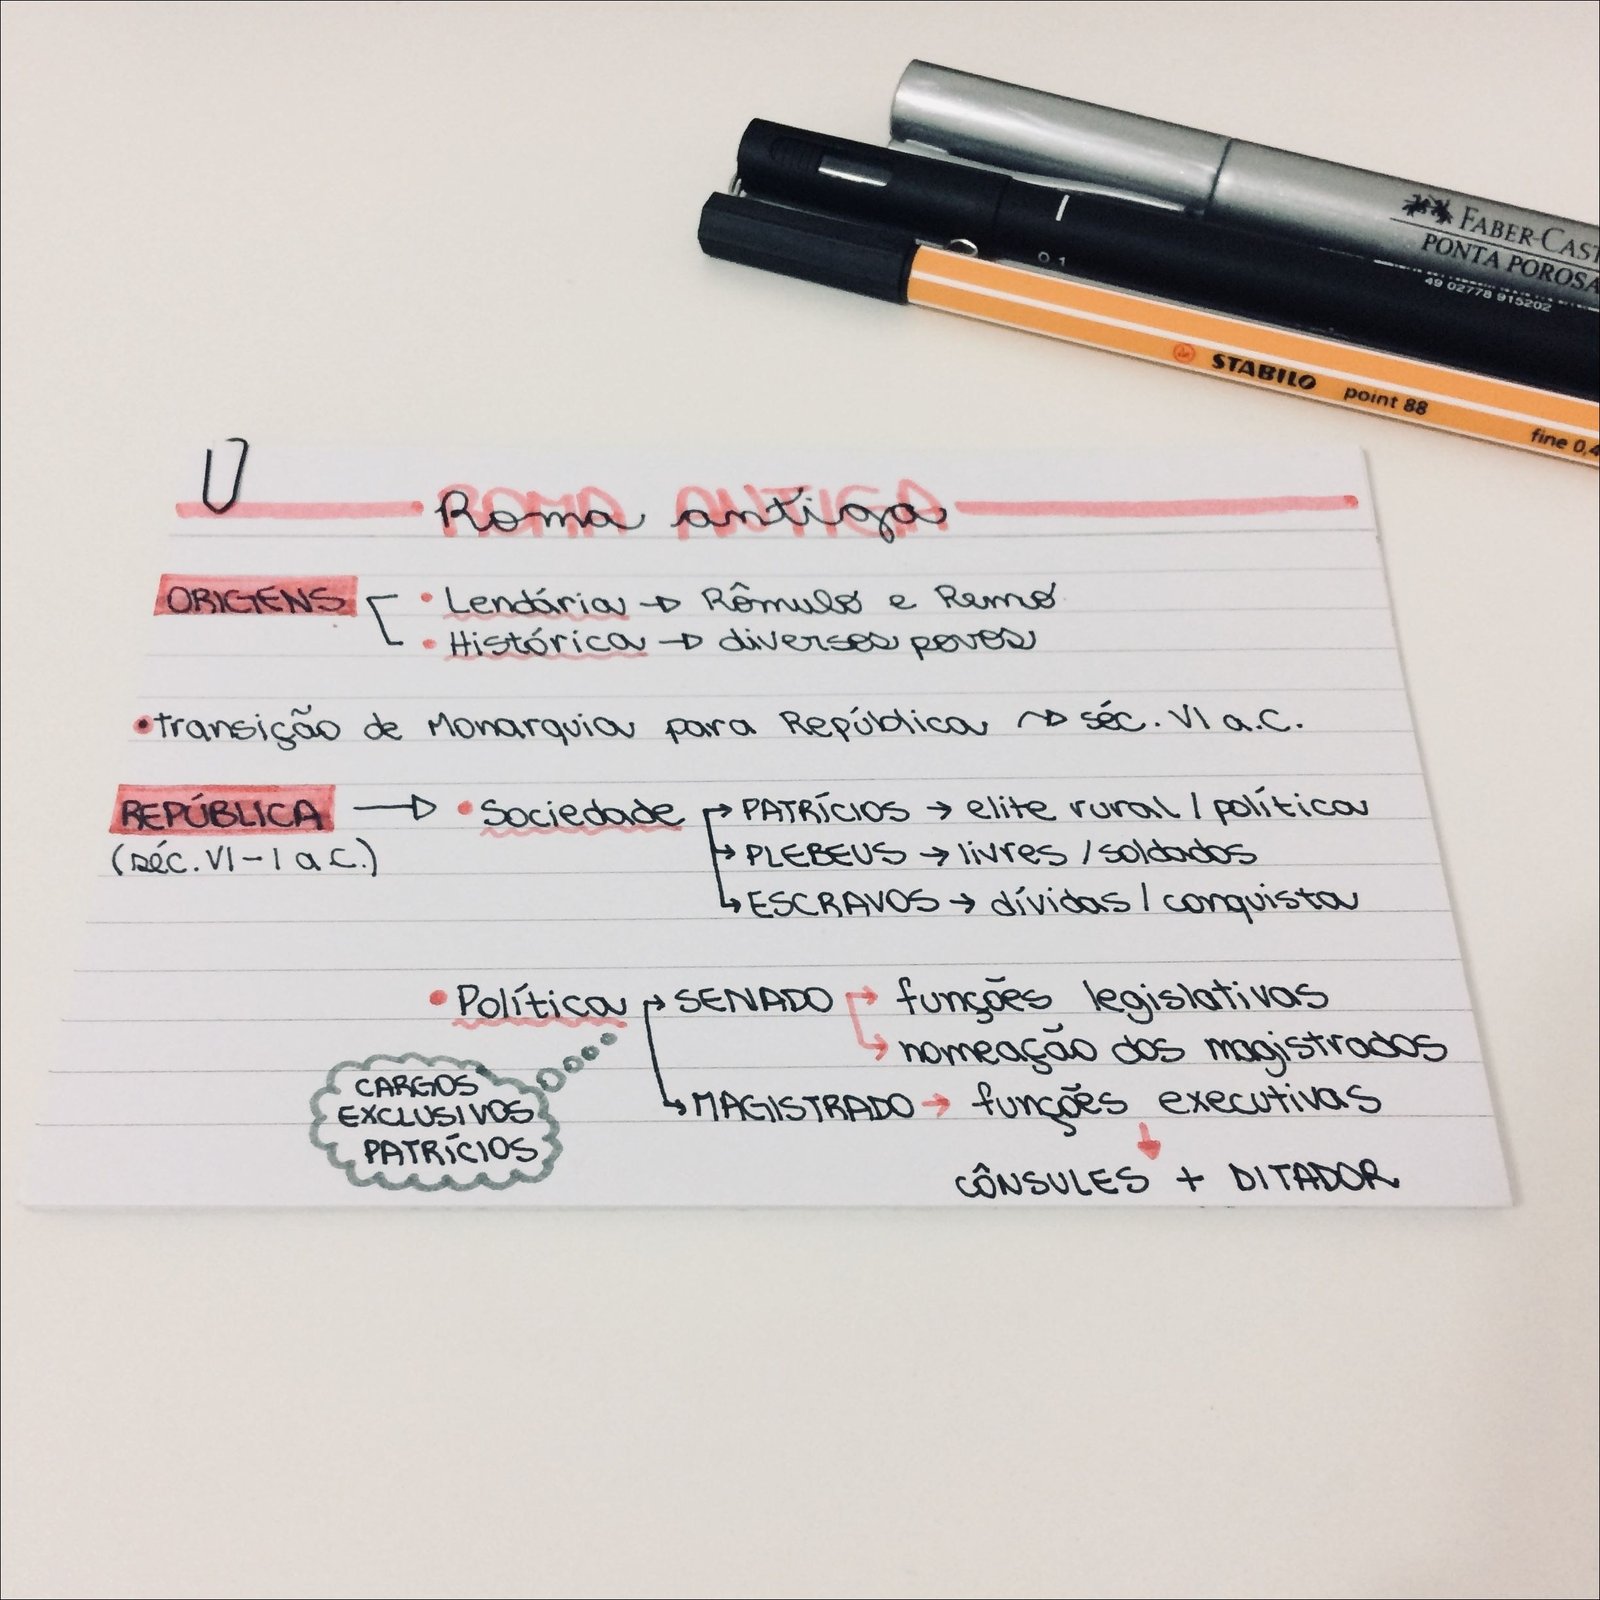 FABER-CAST
PONTA POROSA
49 02778 915202
0.1
STABILO point 88 fine 0,4
Roma antiga
ROMA ANTIGA
ORIGENS • Lendária → Rômulo e Remo
• Histórica → diversos povos
• transição de Monarquia para República ~> séc. VI a.C.
REPÚBLICA → • Sociedade → PATRÍCIOS → elite rural / política
(séc. VI - I a.C.) → PLEBEUS → livres / soldados
→ ESCRAVOS → dívidas / conquista
• Política → SENADO → funções legislativas
→ nomeação dos magistrados
→ MAGISTRADO → funções executivas
CARGOS
EXCLUSIVOS
PATRÍCIOS
CÔNSULES + DITADOR